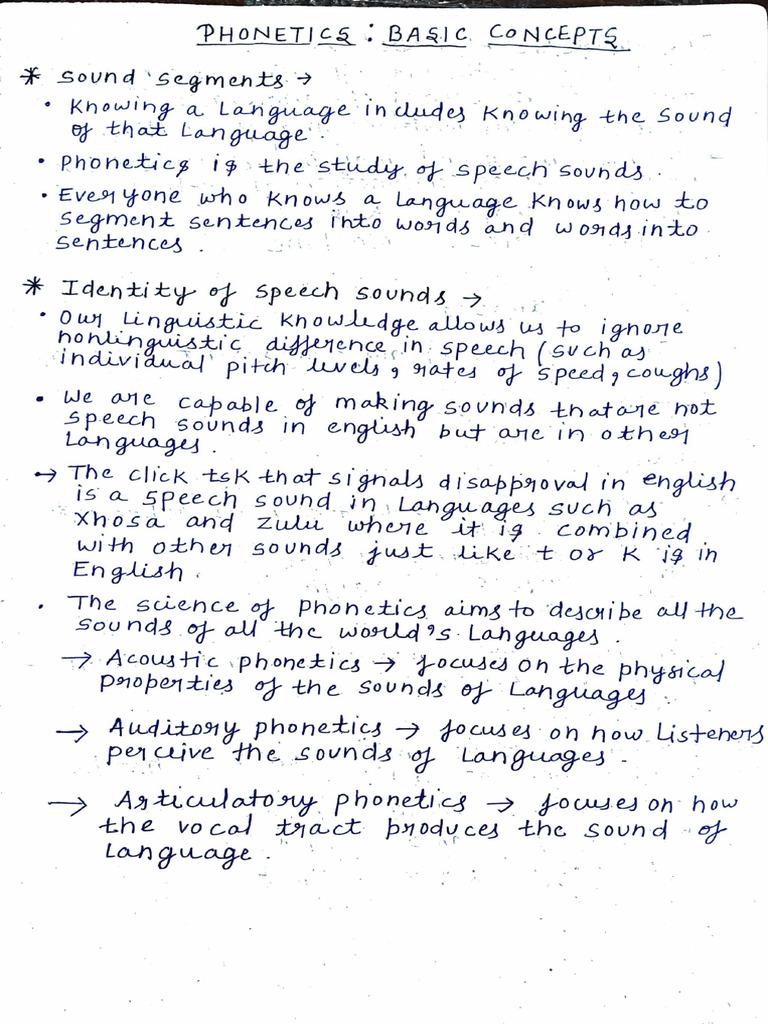 PHONETICS : BASIC CONCEPTS
* Sound segments →
• Knowing a Language includes Knowing the Sound
of that Language.
• Phonetics is the study of speech sounds.
• Everyone who Knows a Language Knows how to
segment sentences into words and words into
sentences.
* Identity of speech sounds →
• Our Linguistic Knowledge allows us to ignore
nonlinguistic difference in speech (such as
individual pitch levels, rates of speed, coughs)
• We are capable of making sounds that are not
speech sounds in english but are in other
Languages.
→ The click tsk that signals disapproval in english
is a speech sound in Languages such as
Xhosa and Zulu where it is combined
with other sounds just like t or K is in
English.
• The science of Phonetics aims to describe all the
sounds of all the world's Languages.
→ Acoustic phonetics → focuses on the physical
properties of the sounds of Languages.
→ Auditory phonetics → focuses on how Listeners
perceive the sounds of Languages.
→ Articulatory phonetics → focuses on how
the vocal tract produces the sound of
Language.